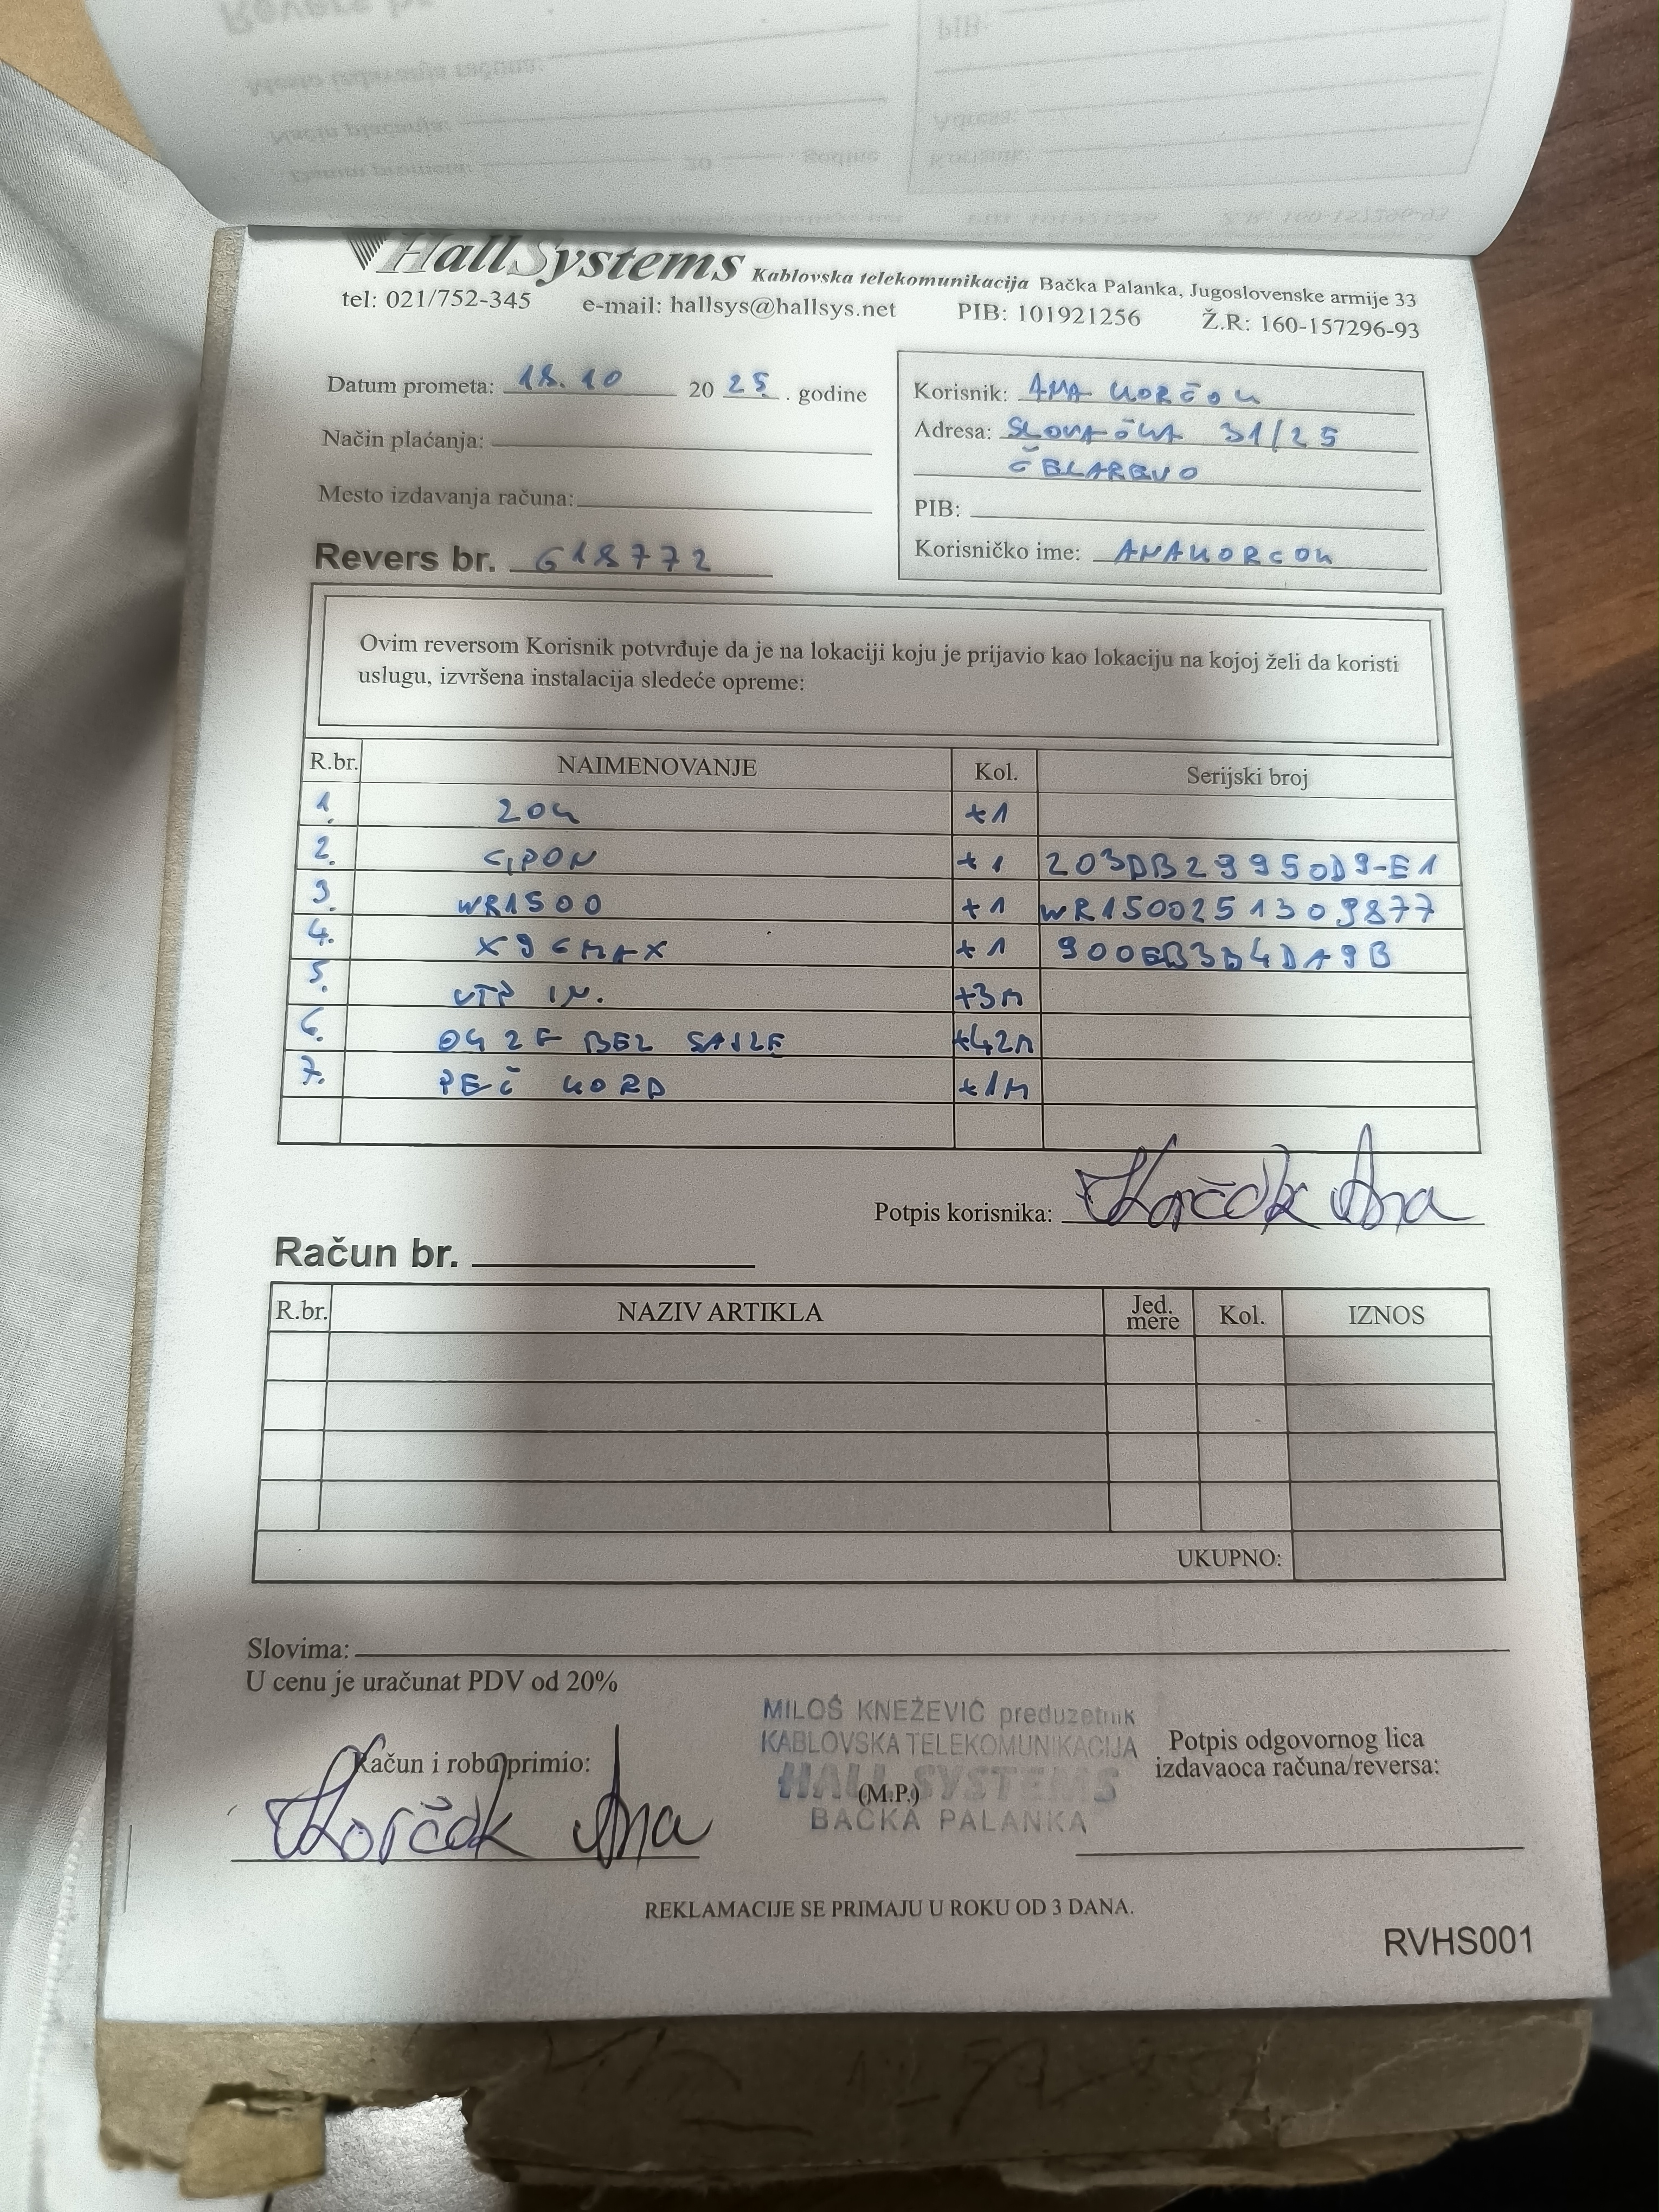 HallSystems Kablovska telekomunikacija Bačka Palanka, Jugoslovenske armije 33
tel: 021/752-345 e-mail: hallsys@hallsys.net PIB: 101921256 Ž.R: 160-157296-93
Datum prometa: 18.10 2025. godine
Način plaćanja:
Mesto izdavanja računa:
Revers br. 618772
Korisnik: ANA KORČOK
Adresa: SLOVAČKA 31/25
ČELAREVO
PIB:
Korisničko ime: ANAKORCOK
Ovim reversom Korisnik potvrđuje da je na lokaciji koju je prijavio kao lokaciju na kojoj želi da koristi
uslugu, izvršena instalacija sledeće opreme:
R.br. NAIMENOVANJE Kol. Serijski broj
1. ZOK +1
2. GPON +1 203DB29950D9-E1
3. WR1500 +1 WR1500251309877
4. X96MAX +1 900EB3D4DA9B
5. UTP IN. +3M
6. OK 2F BEZ SAJLE +42M
7. PEČ KORD +1M
Potpis korisnika: Korčok Ana
Račun br.
R.br. NAZIV ARTIKLA Jed. mere Kol. IZNOS
UKUPNO:
Slovima:
U cenu je uračunat PDV od 20%
MILOŠ KNEŽEVIĆ preduzetnik
KABLOVSKA TELEKOMUNIKACIJA
HALL SYSTEMS
BAČKA PALANKA
Račun i robu primio:
Korčok Ana
(M.P.)
Potpis odgovornog lica
izdavaoca računa/reversa:
REKLAMACIJE SE PRIMAJU U ROKU OD 3 DANA.
RVHS001